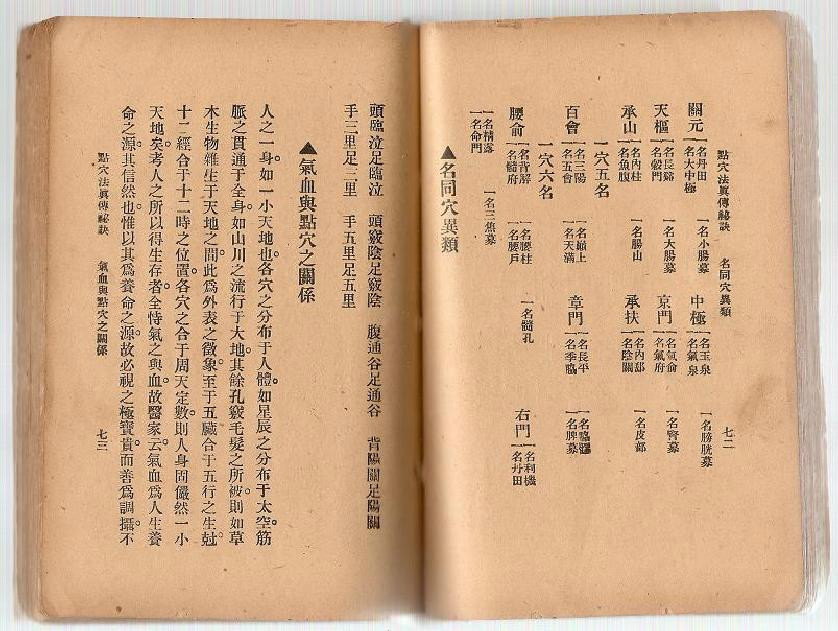 點穴法眞傳祕訣 名同穴異類 七二
關元 一名丹田 一名大中極 一名小腸募 中極 一名玉泉 一名氣泉 一名膀胱募
天樞 一名長谿 一名穀門 一名大腸募 京門 一名氣俞 一名氣府 一名腎募
承山 一名肉柱 一名魚腹 一名腸山 承扶 一名肉郄 一名陰關 一名皮部
一穴五名
百會 一名三陽 一名五會 一名巔上 一名天滿 章門 一名長平 一名季脇 一名脾募
一穴六名
腰俞 一名背解 一名髓府 一名腰柱 一名腰戶 一名髓孔 石門 一名利機 一名丹田
一名精露 一名命門 一名三焦募
▲名同穴異類
頭臨泣足臨泣 頭竅陰足竅陰 腹通谷足通谷 背陽關足陽關
手三里足三里 手五里足五里
▲氣血與點穴之關係
人之一身。如一小天地也。各穴之分布于人體。如星辰之分布于太空。筋
脈之貫通于全身。如山川之流行于大地。其餘孔竅毛髮之所被。則如草
木生物雜生于天地之間。此爲外表之徵象。至于五臟合于五行之生尅
十二經合于十二時之位置。各穴之合于周天定數。則人身固儼然一小
天地矣。考人之所以得生存者。全恃氣之與血。故醫家云。氣血爲人生養
命之源。其信然也。惟以其爲養命之源。故必視之極寶貴。而善爲調攝。不
點穴法眞傳祕訣 氣血與點穴之關係 七三